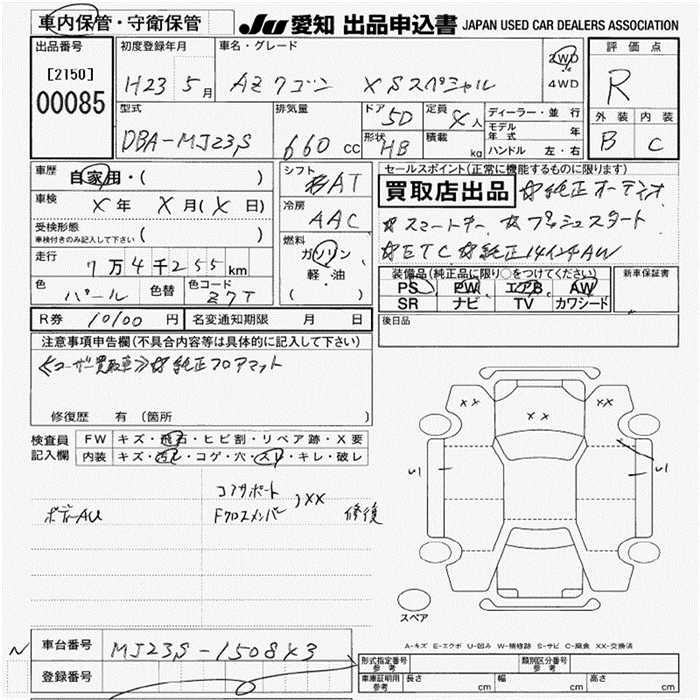 車内保管・守衛保管
JU 愛知 出品申込書 JAPAN USED CAR DEALERS ASSOCIATION
出品番号
[2150]
00085
初度登録年月
H23 5月
車名・グレード
AZワゴン XSスペシャル
2WD
4WD
評価点
R
外装 内装
B C
型式
DBA-MJ23S
排気量
660 cc
ドア 5D
形状 HB
定員 4人
積載 kg
ディーラー・並行
モデル年式 年
ハンドル 左・右
車歴
自家用・( )
車検
X年 X月(X日)
受検形態
車検付きのみ記入して下さい ( )
走行
7万4千255km
色 パール 色替 色コード Z7T
シフト
AT
冷房
AAC
燃料
ガソリン
軽・油
( )
セールスポイント(正常に機能するものに限ります)
買取店出品 ☆純正オーディオ
☆スマートキー ☆プッシュスタート
☆ETC ☆純正14インチAW
装備品(純正品に限り○をつけてください)
PS PW エアB AW
SR ナビ TV カワシード
新車保証書
後日品
R券 10100円 名変通知期限 月 日
注意事項申告欄(不具合内容等は具体的に記入して下さい)
《ユーザー買取車》☆純正フロアマット
修復歴 有(箇所 )
検査員記入欄
FW キズ・飛石・ヒビ割・リペア跡・X要
内装 キズ・汚レ・コゲ・穴・スリ・キレ・破レ
コアサポート
ボデーAU Fクロスメンバー )XX 修復
XX XX XX
U U
スペア
A-キズ E-エクボ U-凹み W-補修跡 S-サビ C-腐食 XX-交換済
N 車台番号 MJ23S-1508X3
登録番号
型式指定番号 参考 類別区分番号 参考
車庫証明用 参考 長さ cm 幅 cm 高さ cm